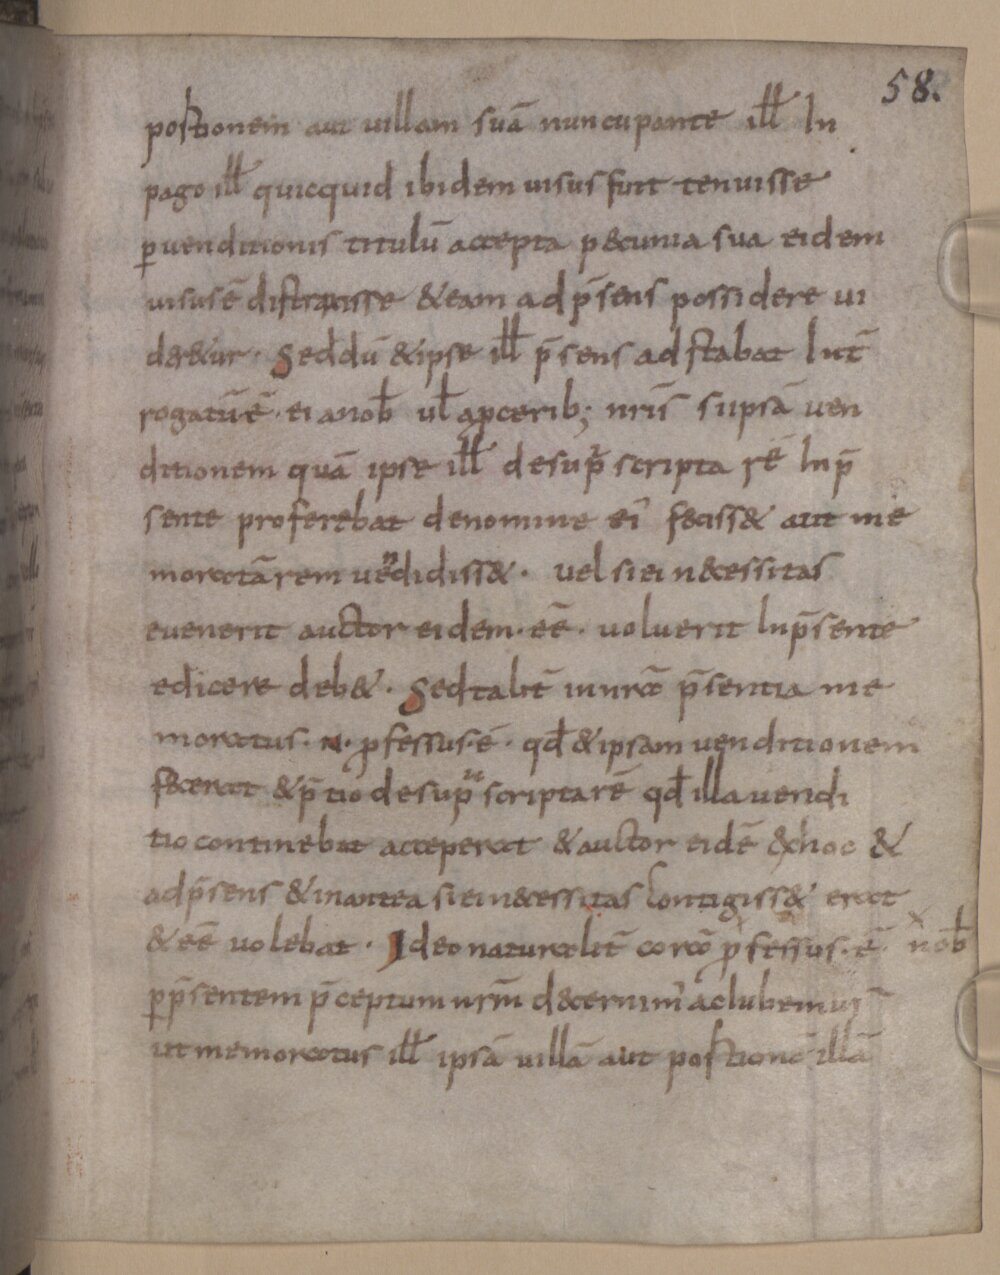 58.
postionem aut uillam suā nuncupante ill̄ In
pago ill̄ quicquid ibidem uisus fuit tenuisse
p̱uenditionis titulū accepta p&cunia sua eidem
uisus ē distraxisse &eam adp̄sens possidere ui
d&&ur · Seddū &ipse ill̄ p̄sens adstabat Int̄
rogatū ē · ei anob̄ ul̄ a proceribꝫ nrīs sup̱sā uen
ditionem quā ipse ill̄ desup̄ scripta rē Inp̄
sente proferebat denomine ei feciss& aut me
moratā rem uēⁿdidiss& · uel siei n&cessitas
euenerit auctor eidem · eē · uoluerit Inp̄sente
edicere deb& · Sedtalit̄ innr̄a p̄sentia me
moratus · N · ꝓfessus · ē · qd̄ &ipsam uenditionem
fecerat &p̄tio desup̄ scripta rē qd̄ illa uendi
tio continebat acceperat &auctor eidē &hoc &
adp̄sens &inantea siein&cessitas contigiss& erat
&eē uolebat · Ideo naturalit̄ corā ꝓfessus · ē nob̄
p̱p̄sentem p̄ceptum nrm̄ d&cernim' aciubemus
ut memoratus ill̄ ipsā uillā aut postionē illā